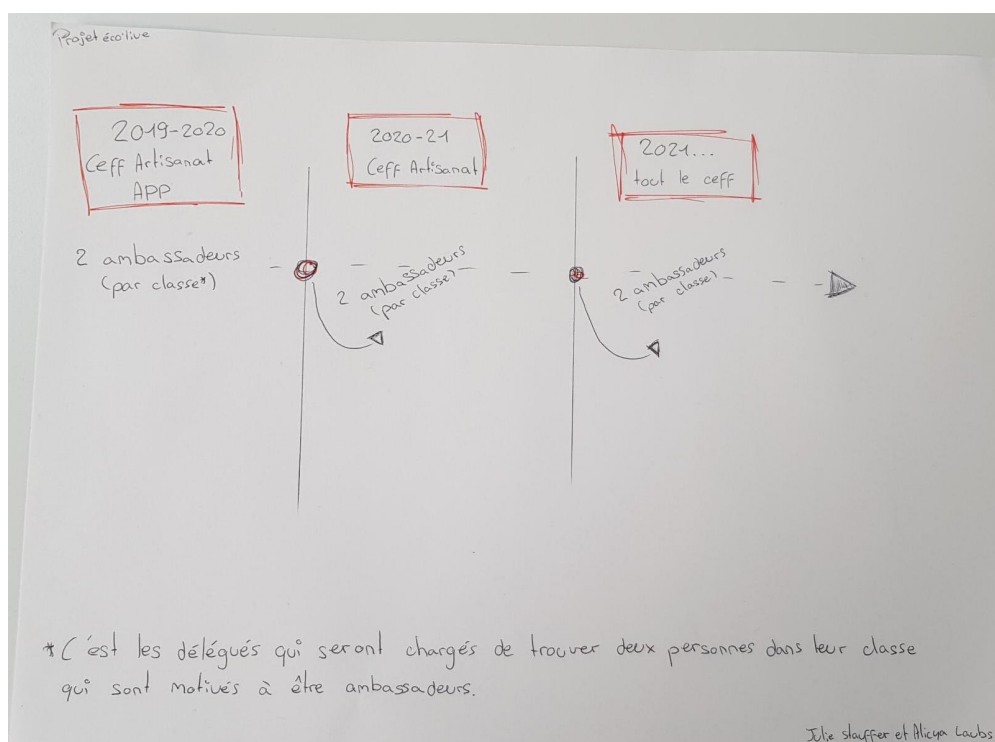 Projet éco'live
2019-2020
Ceff Artisanat
APP
2020-21
Ceff Artisanat
2021...
tout le ceff
2 ambassadeurs
(par classe*)
2 ambassadeurs
(par classe)
2 ambassadeurs
(par classe)
*C'est les délégués qui seront chargés de trouver deux personnes dans leur classe
qui sont motivés à être ambassadeurs.
Julie Stauffer et Alicya Laubs